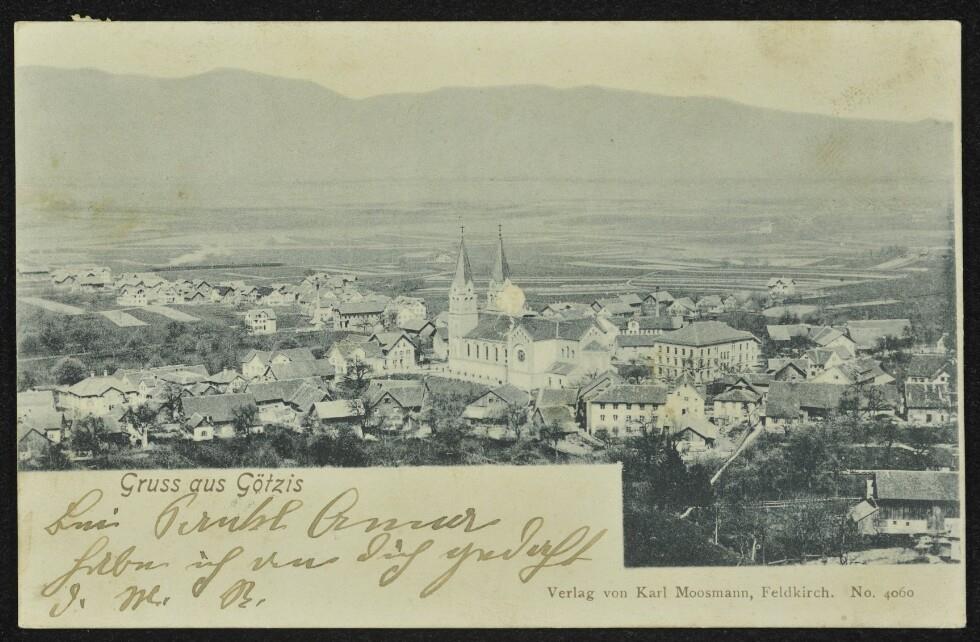 Gruss aus Götzis
Bei Sankt Anna
habe ich an Dich gedacht
J. M. R.
Verlag von Karl Moosmann, Feldkirch. No. 4060